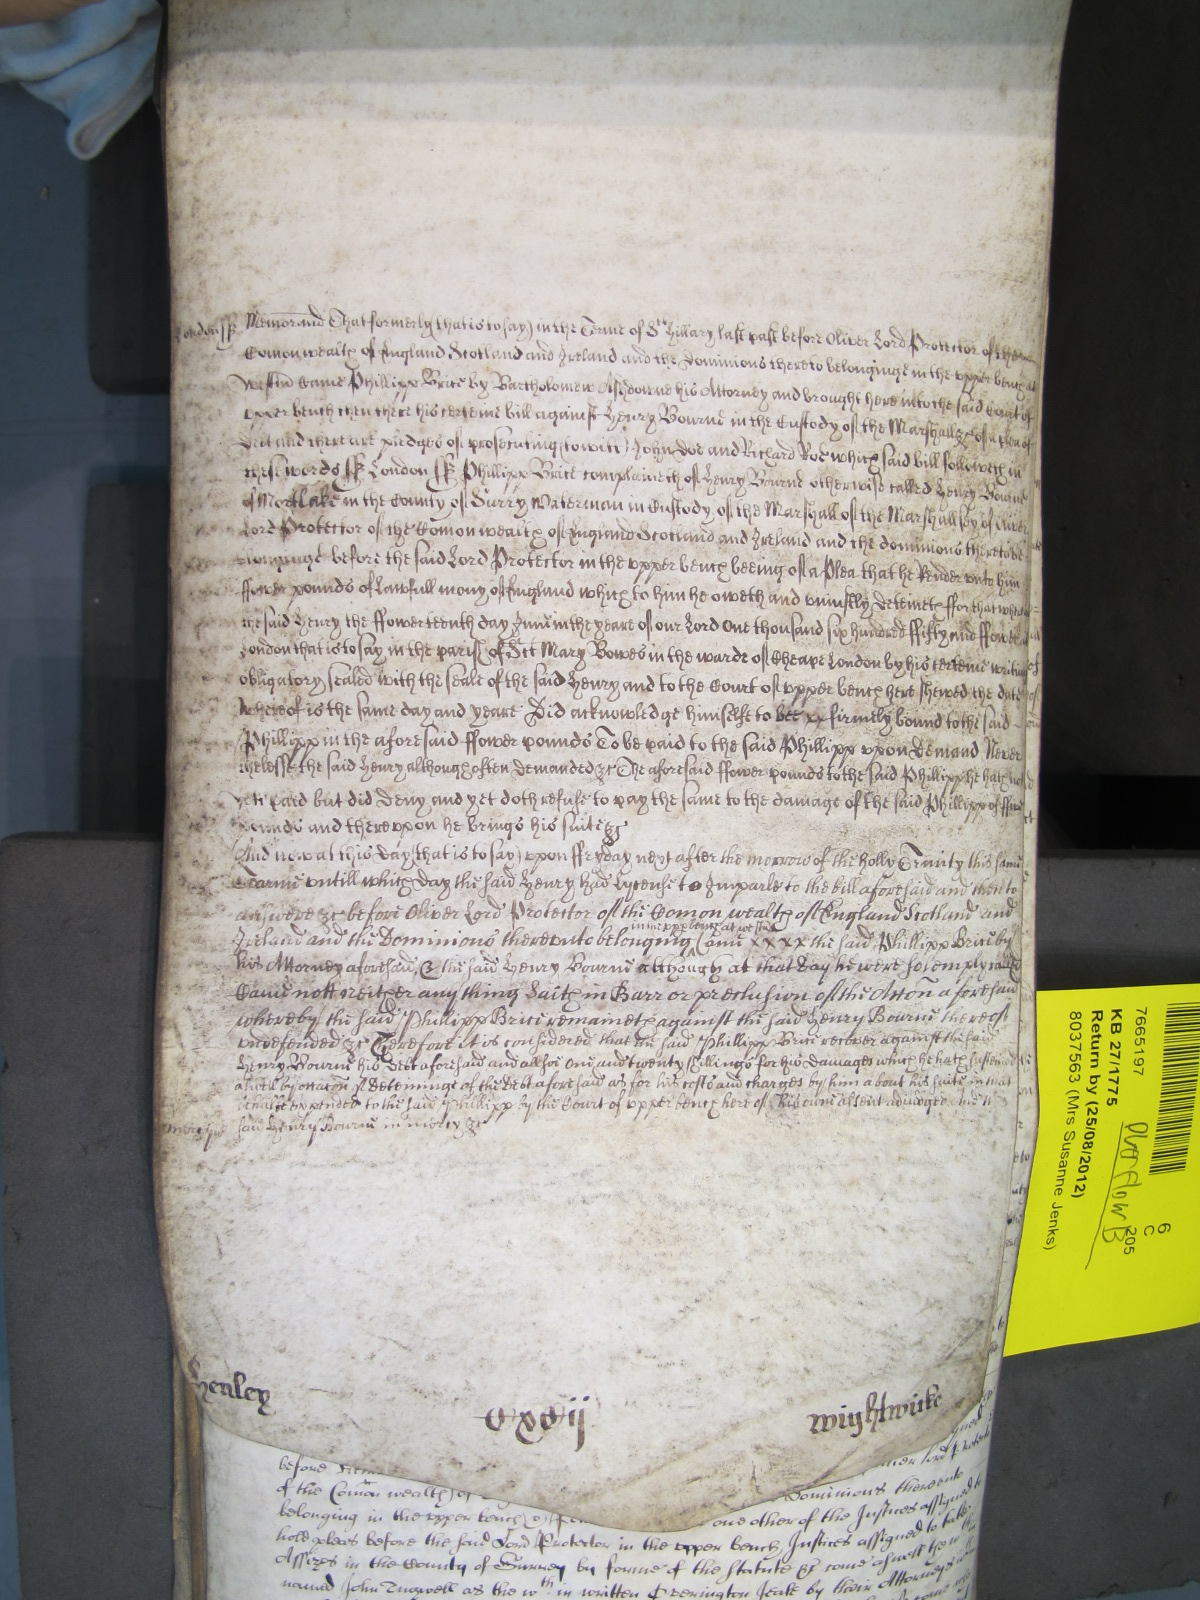 London ss Memorand That formerly (that is to say) in the Terme of St Hillary last past before Oliver Lord Protector of the
Comon wealth of England Scotland and Ireland and the Dominions thereto belonginge in the upper bench at
Westm came Phillipp Brice by Bartholomew Ashbourne his Attorney and brought here into the said Court of
upper bench then there his certeine bill against Henry Bourne in the Custody of the Marshall &c of a plea of
Debt and there are pledges of prosecuting (to witt) John Doe and Richard Roe which said bill followeth in
these words ss London ss Phillipp Brice complaineth of Henry Bourne otherwise called Henry Bourne
of Mortlake in the County of Surry Waterman in Custody of the Marshall of the Marshallsey of Oliver
Lord Protector of the Comon wealth of England Scotland and Ireland and the dominions thereto be
longinge before the said Lord Protector in the upper bench beeing of a Plea that he Render unto him
ffower pounds of Lawfull mony of England which to him he oweth and uniustly deteineth ffor that whereas
the said Henry the ffowerteenth day June in the yeare of our Lord One thousand six hundred ffifty and ffower
London that is to say in the parish of St Mary Bowes in the warde of Cheape London by his certeine writing
obligatory sealed with the seale of the said Henry and to the Court of upper bench here shewed the date
whereof is the same day and yeare Did acknowledge himselfe to bee xx firmely bound to the said
Phillipp in the aforesaid ffower pounds To be paid to the said Phillipp upon Demand Never
thelesse the said Henry although often demanded &c The aforesaid ffower pounds to the said Phillipp he hath not
yett paid but did Deny and yet doth refuse to pay the same to the damage of the said Phillipp of ffive
pounds and thereupon he brings his suite &c
And now at this day (that is to say) upon ffryday next after the morrow of the holly Trinity this same
Tearme untill which day the said Henry had lycense to Imparle to the bill aforesaid and then to
answere &c before Oliver Lord Protector of the Comon wealth of England Scotland and
in the upp bench at westm
Ireland and the Dominions thereunto belonging came xxxx the said Phillipp Brice by
his Attorney aforesaid, & the said Henry Bourne although at that day he were solemply called
Came nott neither any thing Saith in Barr or preclusion of the Acton aforesaid
whereby the said Phillipp Brice remaineth against the said Henry Bourne thereof
undefended &c Therefore it is considered that the said Phillipp Brice recover against the said
Henry Bourne his Debt aforesaid and allsoe One and twenty shillings for his Damages which he hath susteined
aswell by occacon of deteininge of the debt aforesaid as for his costs and charges by him about his suite in that
behalfe expended to the said Phillipp by the Court of upper bench here of his owne assent adiudged And the
mercy &c said Henry Bourne in mercy &c
Henley
Cxcij
Wightwicke
before
of the Comon wealth of Dominions thereunto
belonging in the upper bench one other of the Justices assigned to
hold pleas before the said Lord Protector in the upper bench Justices assigned to take
Assizes in the County of Surrey by forme of the statute &c come aswell the
named John as the wthin written by their Attorneys
7665197
KB 27/1775
Return by (25/08/2012)
8037563 (Mrs Susanne Jenks)
Overflow B
6
C
205